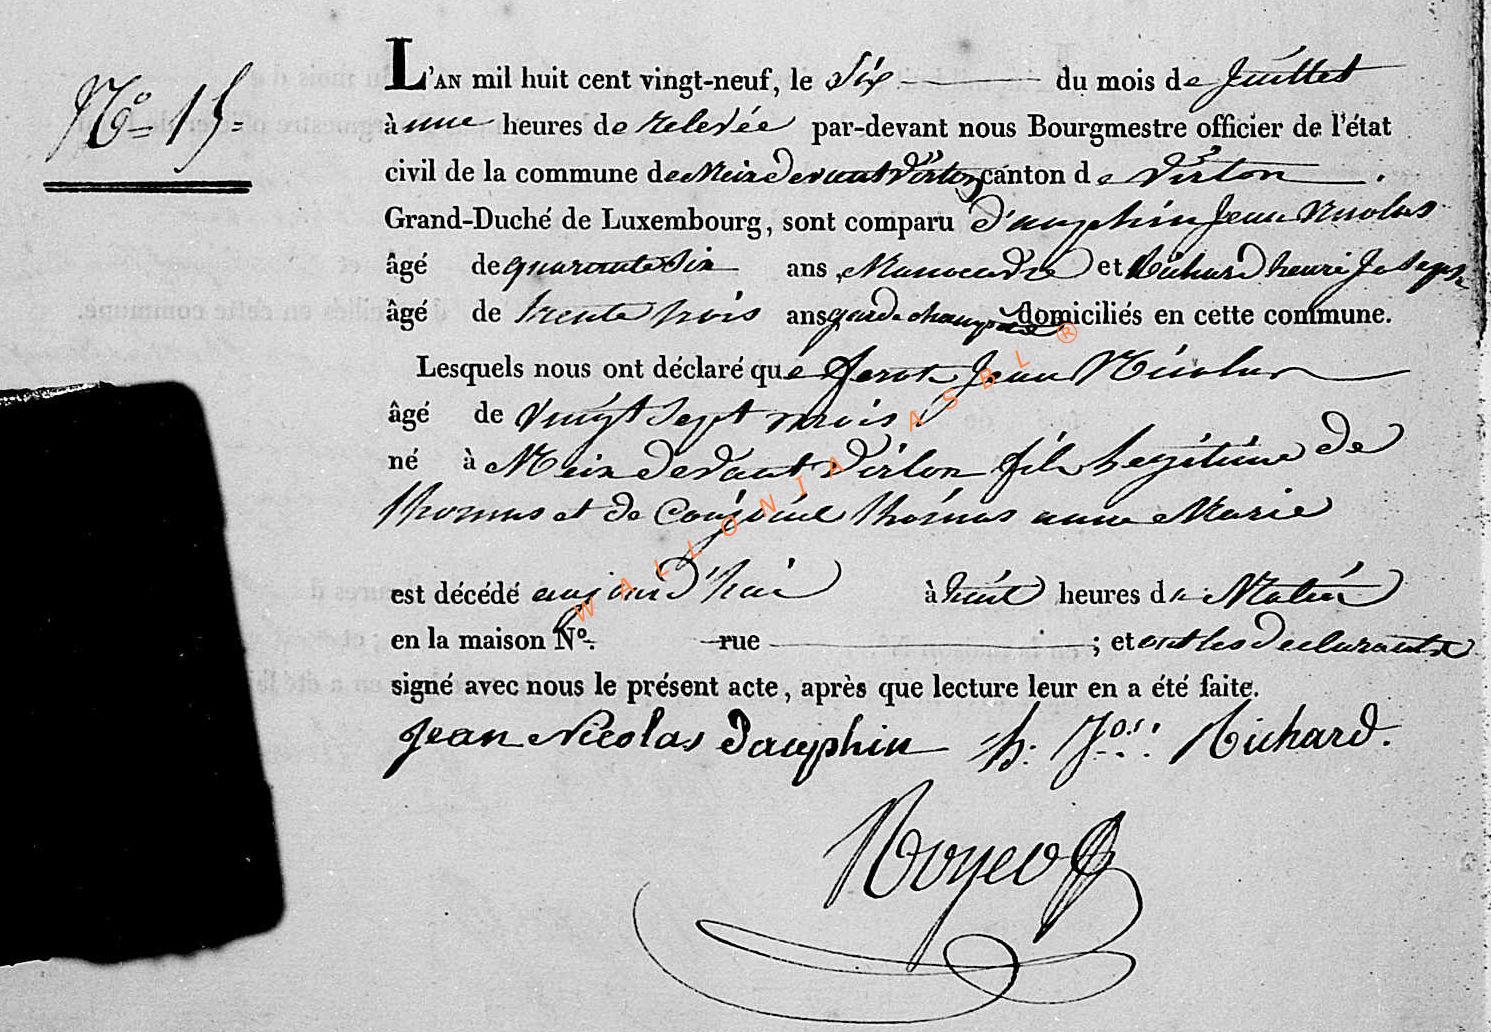 N.º 15.
L'AN mil huit cent vingt-neuf, le Six du mois de Juillet
à une heures de relevée par-devant nous Bourgmestre officier de l'état
civil de la commune de Meix devant Virton canton de Virton.
Grand-Duché de Luxembourg, sont comparu Dauphin Jean Nicolas
âgé de quarante Six ans, Manoeuvre et Richard henri Joseph
âgé de trente trois ans garde champetre domiciliés en cette commune.
Lesquels nous ont déclaré que Jean Nicolas
âgé de Vingt Sept mois
né à Meix devant Virton fils legitime de
thomas et de thomas anne Marie
est décédé aujourd'hui à huit heures du Matin
en la maison N.º rue ; et ont les declarants
signé avec nous le présent acte, après que lecture leur en a été faite.
Jean Nicolas Dauphin h. Jos. Richard.
WALLONIA ASBL ®